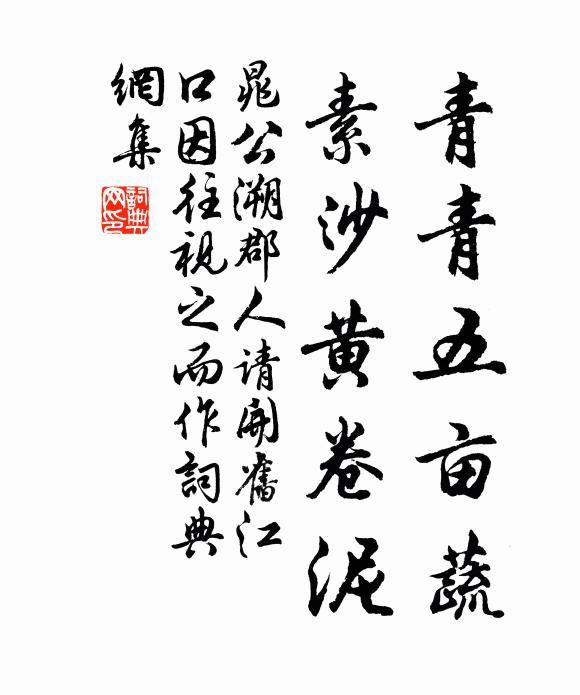 青青五亩蔬
素沙黄卷泥
晁公溯郡人请开旧江
口因往视之而作词典
網集
詞典
网印